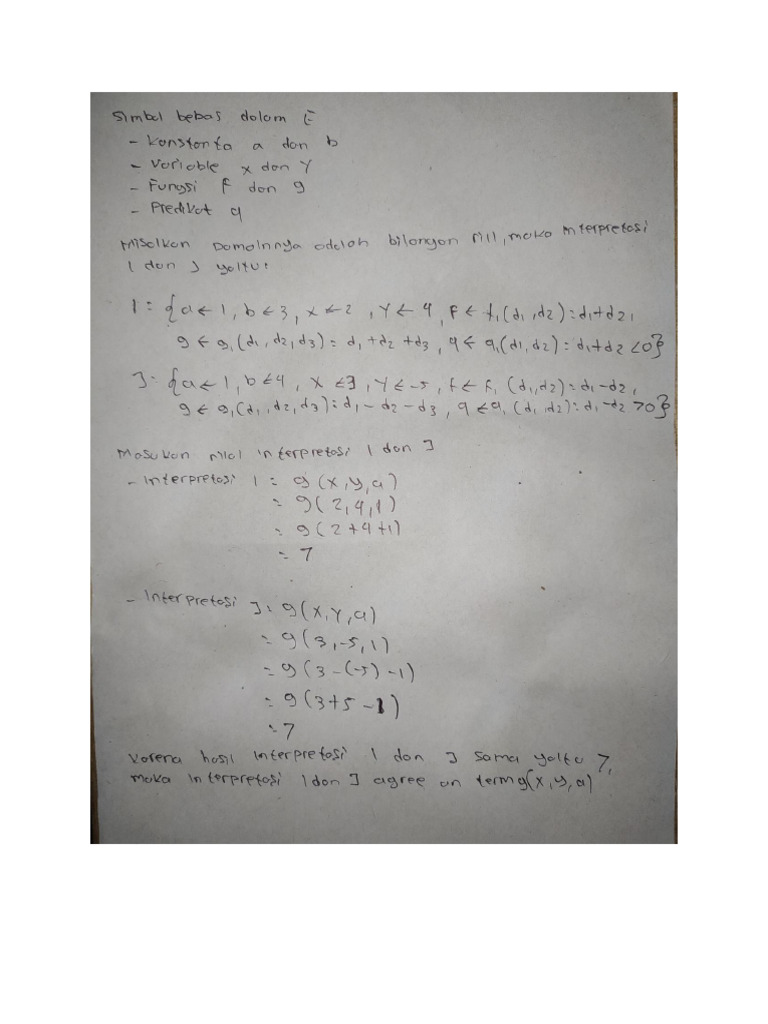 Simbol bebas dalam E
- Konstanta a dan b
- Variable x dan Y
- Fungsi f dan g
- Predikat q
Misalkan Domainnya adalah bilangan riil, maka interpretasi
I dan J yaitu:
I = {a ← 1, b ← 3, x ← 2, Y ← 4, F ← f₁(d₁,d₂) = d₁+d₂,
g ← g₁(d₁,d₂,d₃) = d₁+d₂+d₃, q ← q₁(d₁,d₂) = d₁+d₂ <0}
J = {a ← 1, b ← 4, X ← 3, Y ← -5, f ← f₁(d₁,d₂) = d₁-d₂,
g ← g₁(d₁,d₂,d₃) = d₁-d₂-d₃, q ← q₁(d₁,d₂) = d₁-d₂ >0}
Masukan nilai interpretasi I dan J
- Interpretasi I = g(x,y,a)
= g(2,4,1)
= g(2+4+1)
= 7
- Interpretasi J = g(x,Y,a)
= g(3,-5,1)
= g(3-(-5)-1)
= g(3+5-1)
= 7
Karena hasil interpretasi I dan J sama yaitu 7,
maka interpretasi I dan J agree on term g(x,y,a)